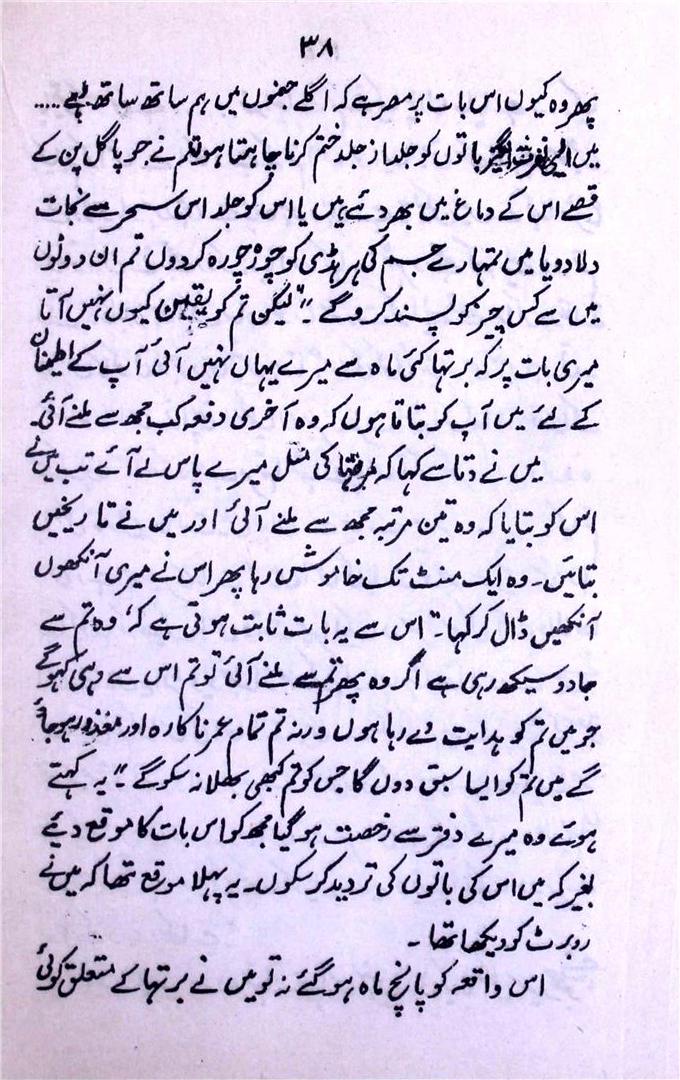 ۳۸
پھر وہ کیوں اس بات پر مصر ہے کہ اگلے جنموں میں ہم ساتھ ساتھ تھے .....
میں ایسی نفرت انگیز باتوں کو جلد از جلد ختم کرنا چاہتا ہوں تم نے جو پاگل پن کے
قصے اس کے دماغ میں بھر دئے ہیں یا اس کو جلد اس سحر سے نجات
دلا دو یا میں تمہارے جسم کی ہر ہڈی کو چور چورہ کر دوں تم ان دونوں
میں سے کس چیز کو پسند کرو گے ۔" "لیکن تم کو یقین کیوں نہیں آتا
میری بات پر کہ برتھا کئی ماہ سے میرے یہاں نہیں آئی آپ کے اطمینان
کے لئے میں آپ کو بتاتا ہوں کہ وہ آخری دفعہ کب مجھ سے ملنے آئی۔
میں نے دتا سے کہا کہ برتھا کی مثل میرے پاس لے آئے تب میں نے
اس کو بتایا کہ وہ تین مرتبہ مجھ سے ملنے آئی اور میں نے تاریخیں
بتائیں۔ وہ ایک منٹ تک خاموش رہا پھر اس نے میری آنکھوں
آنکھیں ڈال کر کہا۔" اس سے یہ بات ثابت ہوتی ہے کہ' وہ تم سے
جادو سیکھ رہی ہے اگر وہ پھر تم سے ملنے آئی تو تم اس سے وہی کہو گے
جو میں تم کو ہدایت دے رہا ہوں ورنہ تم تمام عمر ناکارہ اور معذور ہو جاؤ
گے میں تم کو ایسا سبق دوں گا جس کو تم کبھی بھلا نہ سکو گے ۔" یہ کہتے
ہوئے وہ میرے دفتر سے رخصت ہو گیا مجھ کو اس بات کا موقع دیئے
بغیر کہ میں اس کی باتوں کی تردید کر سکوں۔ یہ پہلا موقع تھا کہ میں نے
روبرٹ کو دیکھا تھا ۔
اس واقعہ کو پانچ ماہ ہو گئے نہ تو میں نے برتھا کے متعلق کوئی